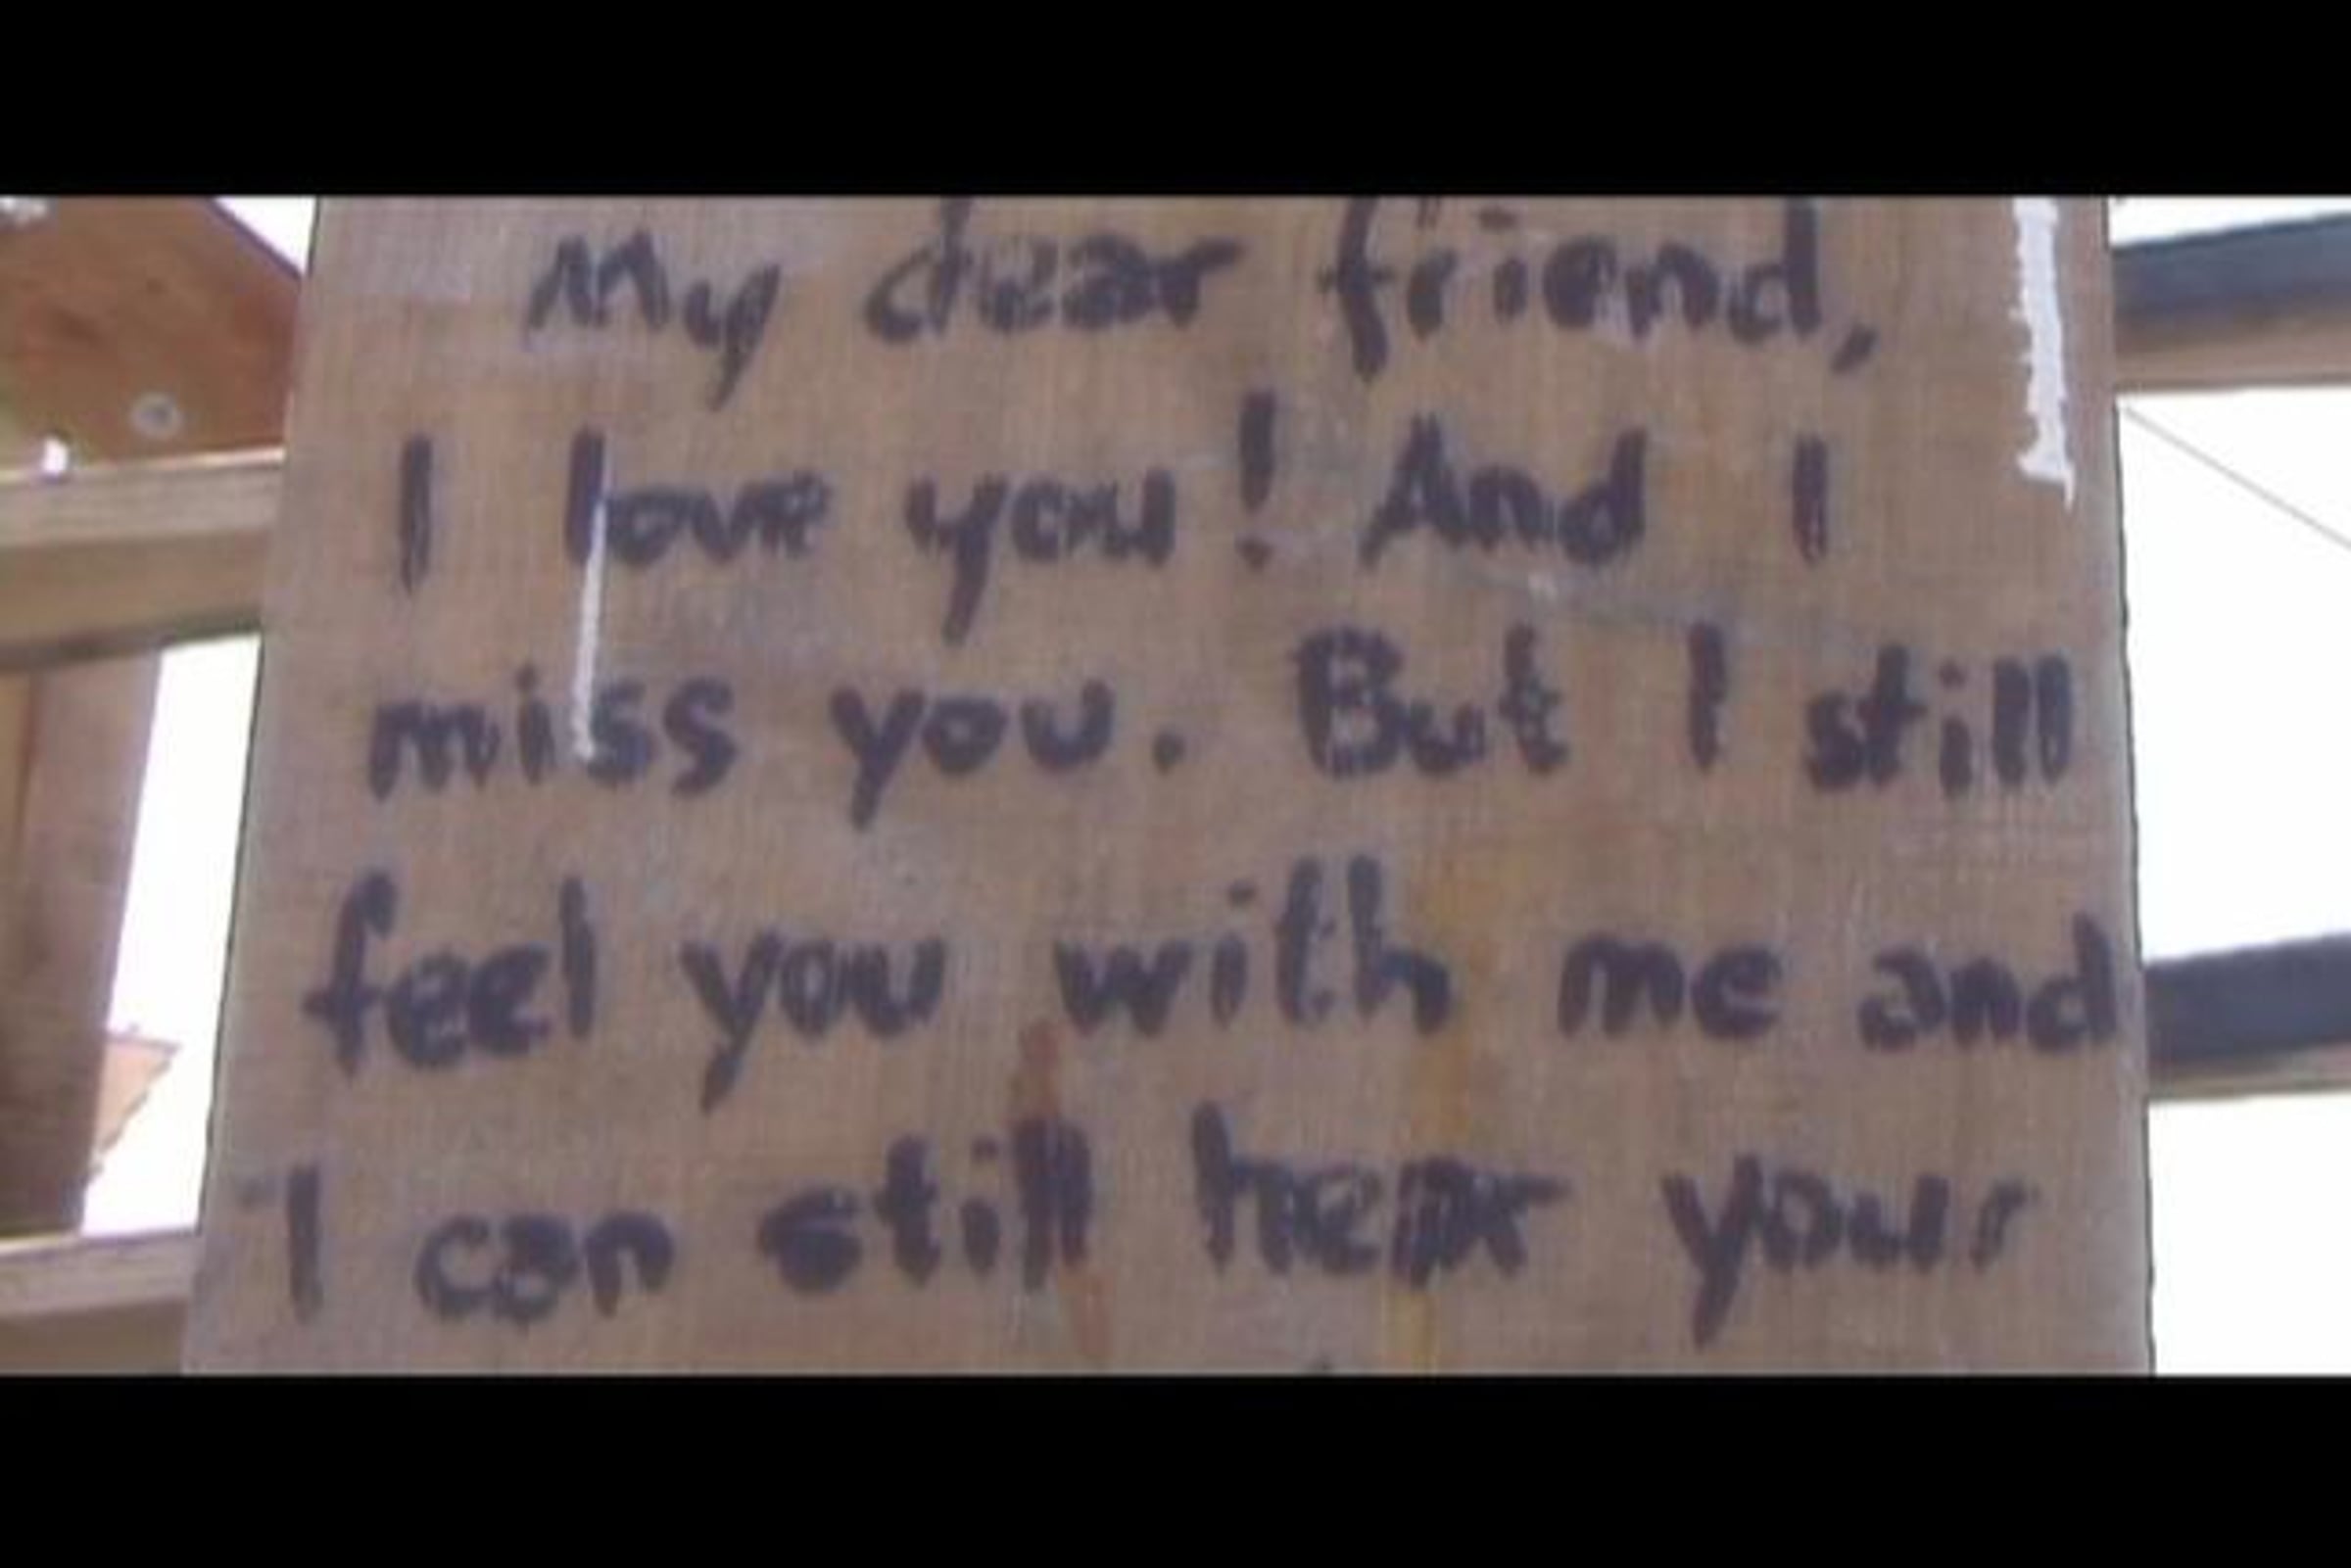 My dear friend,
I love you! And I
miss you. But I still
feel you with me and
I can still hear your